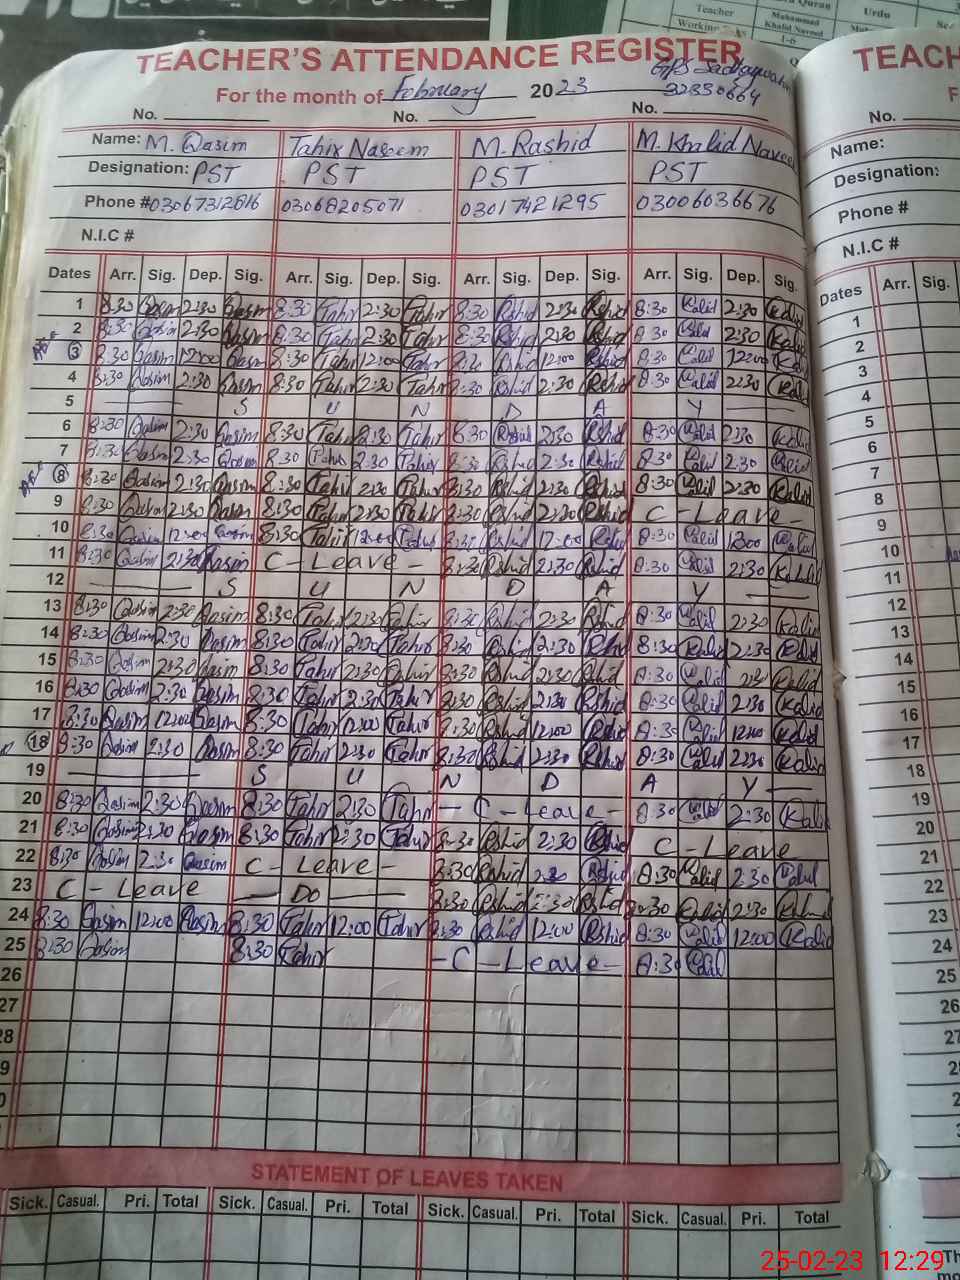 Teacher
Muhammad
Khalid Naveed
Urdu
Quran
Working Days
1-6
TEACHER'S ATTENDANCE REGISTER
For the month of February 2023
32330664
No. No. No.
Name: M. Qasim Tahir Naseem M. Rashid M. Khalid Naveed
Designation: PST PST PST PST
Phone # 03067312616 03068205071 03017421295 03006036676
N.I.C #
Dates Arr. Sig. Dep. Sig. Arr. Sig. Dep. Sig. Arr. Sig. Dep. Sig. Arr. Sig. Dep. Sig.
1 8:30 Qasim 2:30 Qasim 8:30 Tahir 2:30 Tahir 8:30 Rshid 2:30 Rshid 8:30 Kalid 2:30 Kalid
2 8:30 Qasim 2:30 Qasim 8:30 Tahir 2:30 Tahir 8:30 Rshid 2:30 Rshid 8:30 Kalid 2:30 Kalid
3 8:30 Qasim 12:00 Qasim 8:30 Tahir 12:00 Tahir 8:30 Rshid 12:00 Rshid 8:30 Kalid 12:00 Kalid
4 8:30 Qasim 2:30 Qasim 8:30 Tahir 2:30 Tahir 8:30 Rshid 2:30 Rshid 8:30 Kalid 2:30 Kalid
5 S U N D A Y
6 8:30 Qasim 2:30 Qasim 8:30 Tahir 2:30 Tahir 8:30 Rshid 2:30 Rshid 8:30 Kalid 2:30 Kalid
7 8:30 Qasim 2:30 Qasim 8:30 Tahir 2:30 Tahir 8:30 Rshid 2:30 Rshid 8:30 Kalid 2:30 Kalid
8 8:30 Qasim 2:30 Qasim 8:30 Tahir 2:30 Tahir 8:30 Rshid 2:30 Rshid 8:30 Kalid 2:30 Kalid
9 8:30 Qasim 2:30 Qasim 8:30 Tahir 2:30 Tahir 8:30 Rshid 2:30 Rshid C - Leave -
10 8:30 Qasim 12:00 Qasim 8:30 Tahir 12:00 Tahir 8:30 Rshid 12:00 Rshid 8:30 Kalid 1200 Kalid
11 8:30 Qasim 2:30 Qasim C - Leave - 8:30 Rshid 2:30 Rshid 8:30 Kalid 2:30 Kalid
12 S U N D A Y
13 8:30 Qasim 2:30 Qasim 8:30 Tahir 2:30 Tahir 8:30 Rshid 2:30 Rshid 8:30 Kalid 2:30 Kalid
14 8:30 Qasim 2:30 Qasim 8:30 Tahir 2:30 Tahir 8:30 Rshid 2:30 Rshid 8:30 Kalid 2:30 Kalid
15 8:30 Qasim 2:30 Qasim 8:30 Tahir 2:30 Tahir 8:30 Rshid 2:30 Rshid 8:30 Kalid 2:30 Kalid
16 8:30 Qasim 2:30 Qasim 8:30 Tahir 2:30 Tahir 8:30 Rshid 2:30 Rshid 8:30 Kalid 2:30 Kalid
17 8:30 Qasim 12:00 Qasim 8:30 Tahir 12:00 Tahir 8:30 Rshid 12:00 Rshid 8:30 Kalid 12:00 Kalid
18 8:30 Qasim 2:30 Qasim 8:30 Tahir 2:30 Tahir 8:30 Rshid 2:30 Rshid 8:30 Kalid 2:30 Kalid
19 S U N D A Y
20 8:30 Qasim 2:30 Qasim 8:30 Tahir 2:30 Tahir - C - Leave - 8:30 Kalid 2:30 Kalid
21 8:30 Qasim 2:30 Qasim 8:30 Tahir 2:30 Tahir 8:30 Rshid 2:30 Rshid C - Leave
22 8:30 Qasim 2:30 Qasim C - Leave - 8:30 Rshid 2:30 Rshid 8:30 Kalid 2:30 Kalid
23 C - Leave — Do — 8:30 Rshid 2:30 Rshid 8:30 Kalid 2:30 Kalid
24 8:30 Qasim 12:00 Qasim 8:30 Tahir 12:00 Tahir 8:30 Rshid 12:00 Rshid 8:30 Kalid 12:00 Kalid
25 8:30 Qasim 8:30 Tahir - C - Leave - 8:30 Kalid
26
27
28
STATEMENT OF LEAVES TAKEN
Sick. Casual. Pri. Total Sick. Casual. Pri. Total Sick. Casual. Pri. Total Sick. Casual. Pri. Total
TEACH
No.
Name:
Designation:
Phone #
N.I.C #
Dates Arr. Sig.
1
2
3
4
5
6
7
8
9
10
11
12
13
14
15
16
17
18
19
20
21
22
23
24
25
26
27
25-02-23 12:29